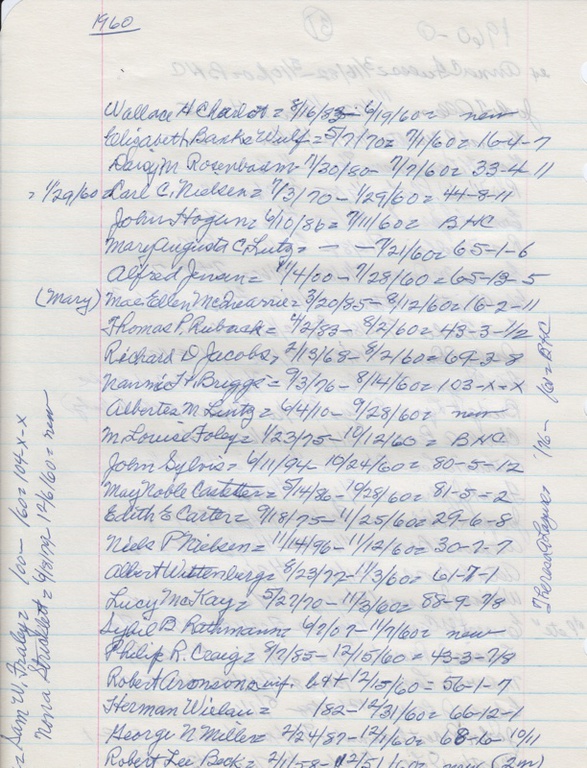 1960
Wallace H Charlot = 8/16/83 - 6/19/60 = new
Elizabeth Banks Wulf = 5/7/70 = 7/1/60 = 16-4-7
Daisy M. Rosenbaum - 7/30/80 - 7/7/60 = 33-4-11
= 1/29/60 Carl C. Nielsen = 7/3/70 - 1/29/60 = 44-8-11
John Hogun = 6/10/86 = 7/11/60 = BHC
Mary Augusta C Lutz = — — 7/21/60 = 65-1-6
Alfred = 1/4/00 - 7/28/60 = 65-13-5
(Mary) Mae Ellen = 3/20/85 - 8/12/60 = 16-2-11
Thomas P. Ruback = 4/2/83 - 8/2/60 = 43-3-1/2
Richard D Jacobs, 2/13/68 - 8/2/60 = 69-3-8
Nannie H Briggs = 9/3/76 - 8/14/60 = 103-x-x
Albertea M Lutz = 6/4/10 - 9/28/60 = new
M Louise Foley = 1/23/75 - 10/12/60 = BHC
John Sylvis = 6/11/94 - 10/24/60 = 80-5-12
May Noble Castetter = 5/14/86 - 10/28/60 = 81-5-2
Edith E Carter = 9/18/75 - 11/25/60 = 29-6-8
Niels P Nielsen = 11/14/96 - 11/12/60 = 30-7-7
Albert Wittenberg = 8/23/77 - 11/3/60 = 61-7-1
Lucy McKay = 5/27/70 - 11/3/60 = 88-9-7/8
Sybil B. Rathmann = 6/7/07 - 11/7/60 = new
Philip R. Craig = 8/7/85 - 12/15/60 = 43-3-7/8
Robert Aronson inf. b&d 12/15/60 = 56-1-7
Herman Wielau = /82 - 12/31/60 = 66-12-1
George N Miller = 2/24/87 - 12/1/60 = 68-10-10/11
Robert Lee Beck = 2/1/58 - new (2m)
= Sam W. Fraley = /00 - /60 = 104-x-x
Nora = 6/8/72 12/6/60 = new
Theresa /76 - /60 = BHC